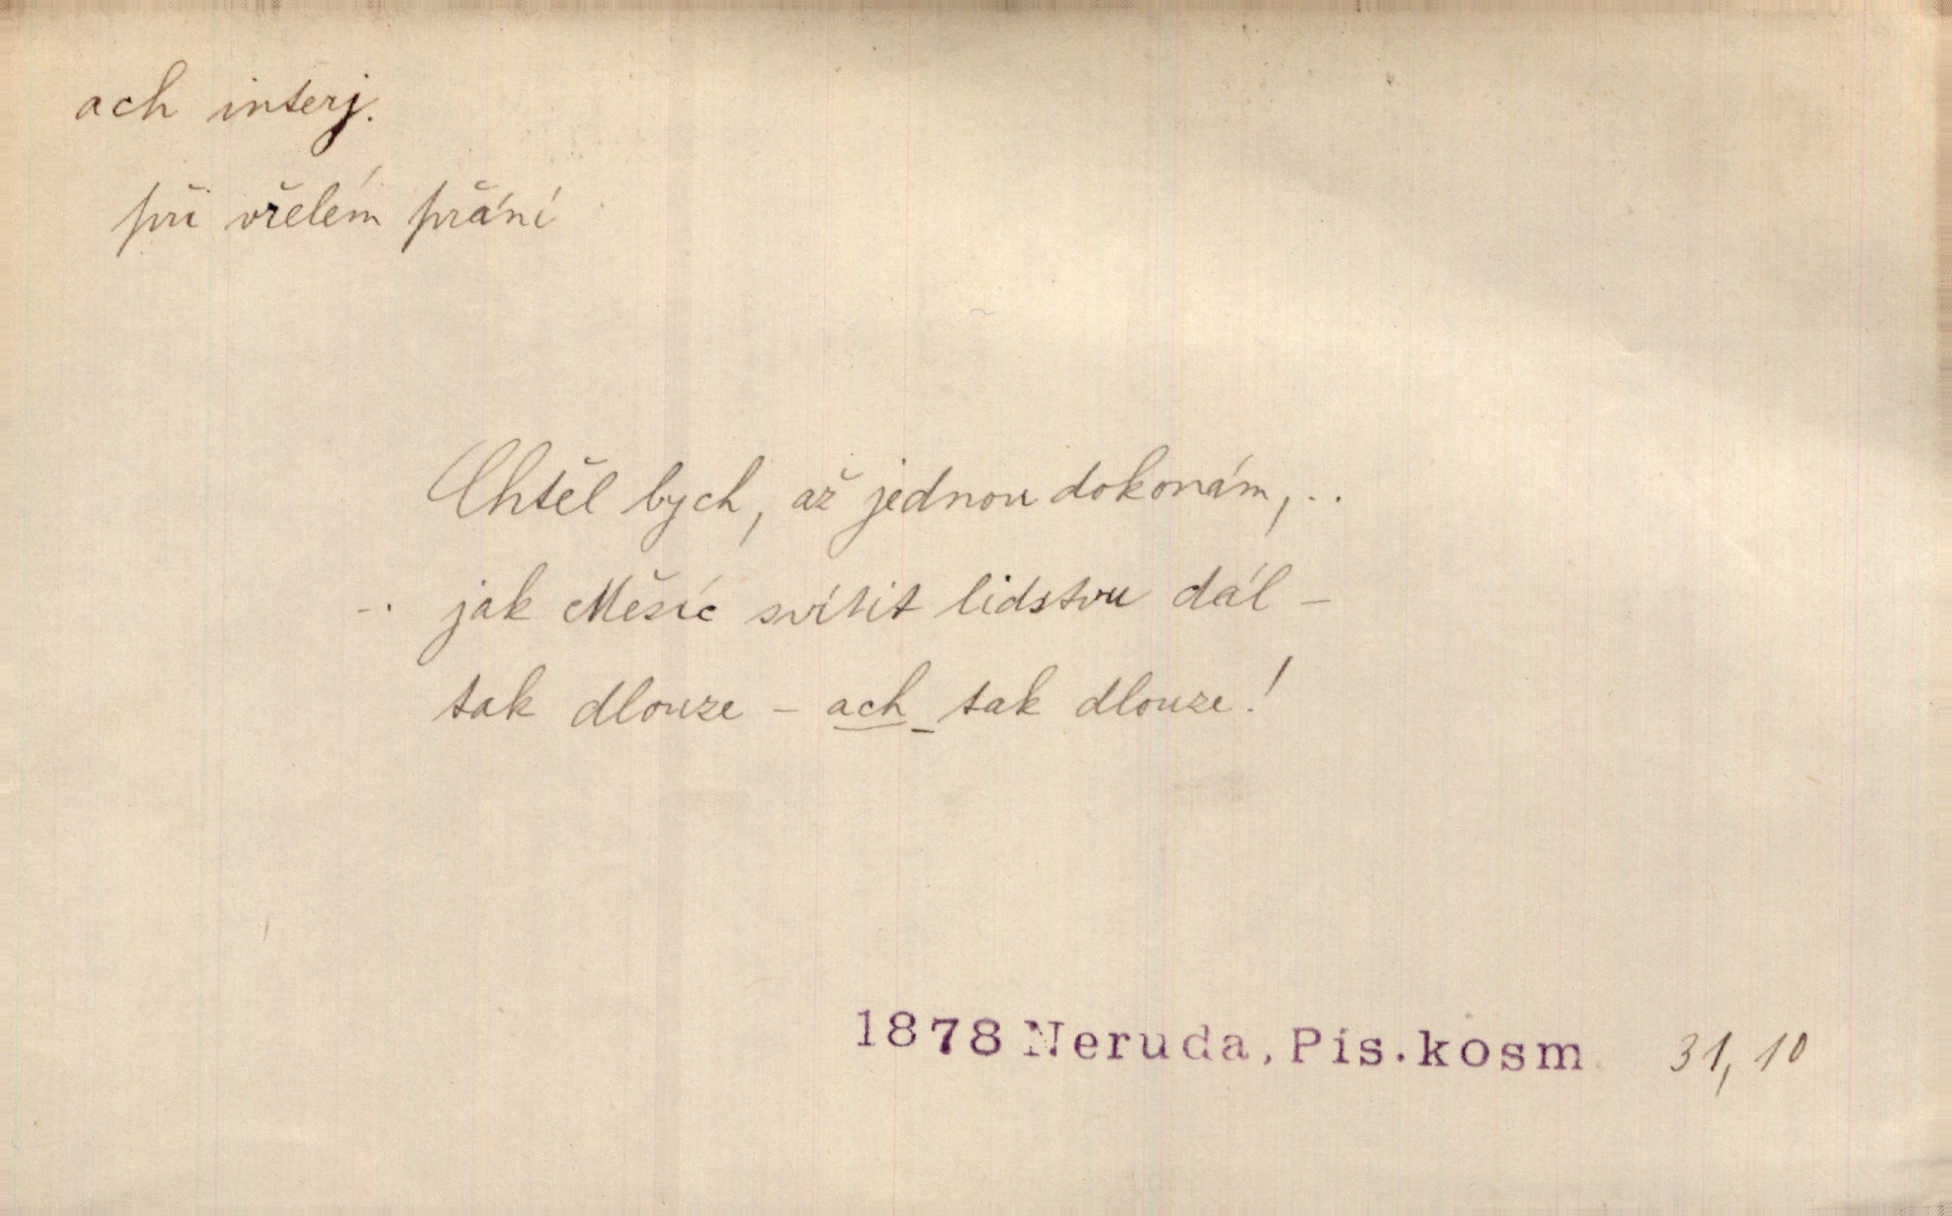 ach interj.
při vřelém přání
Chtěl bych, až jednou dokonám, ..
-. jak Měsíc svítit lidstvu dál –
tak dlouze – ach tak dlouze!
1878 Neruda, Pís.kosm 31, 10